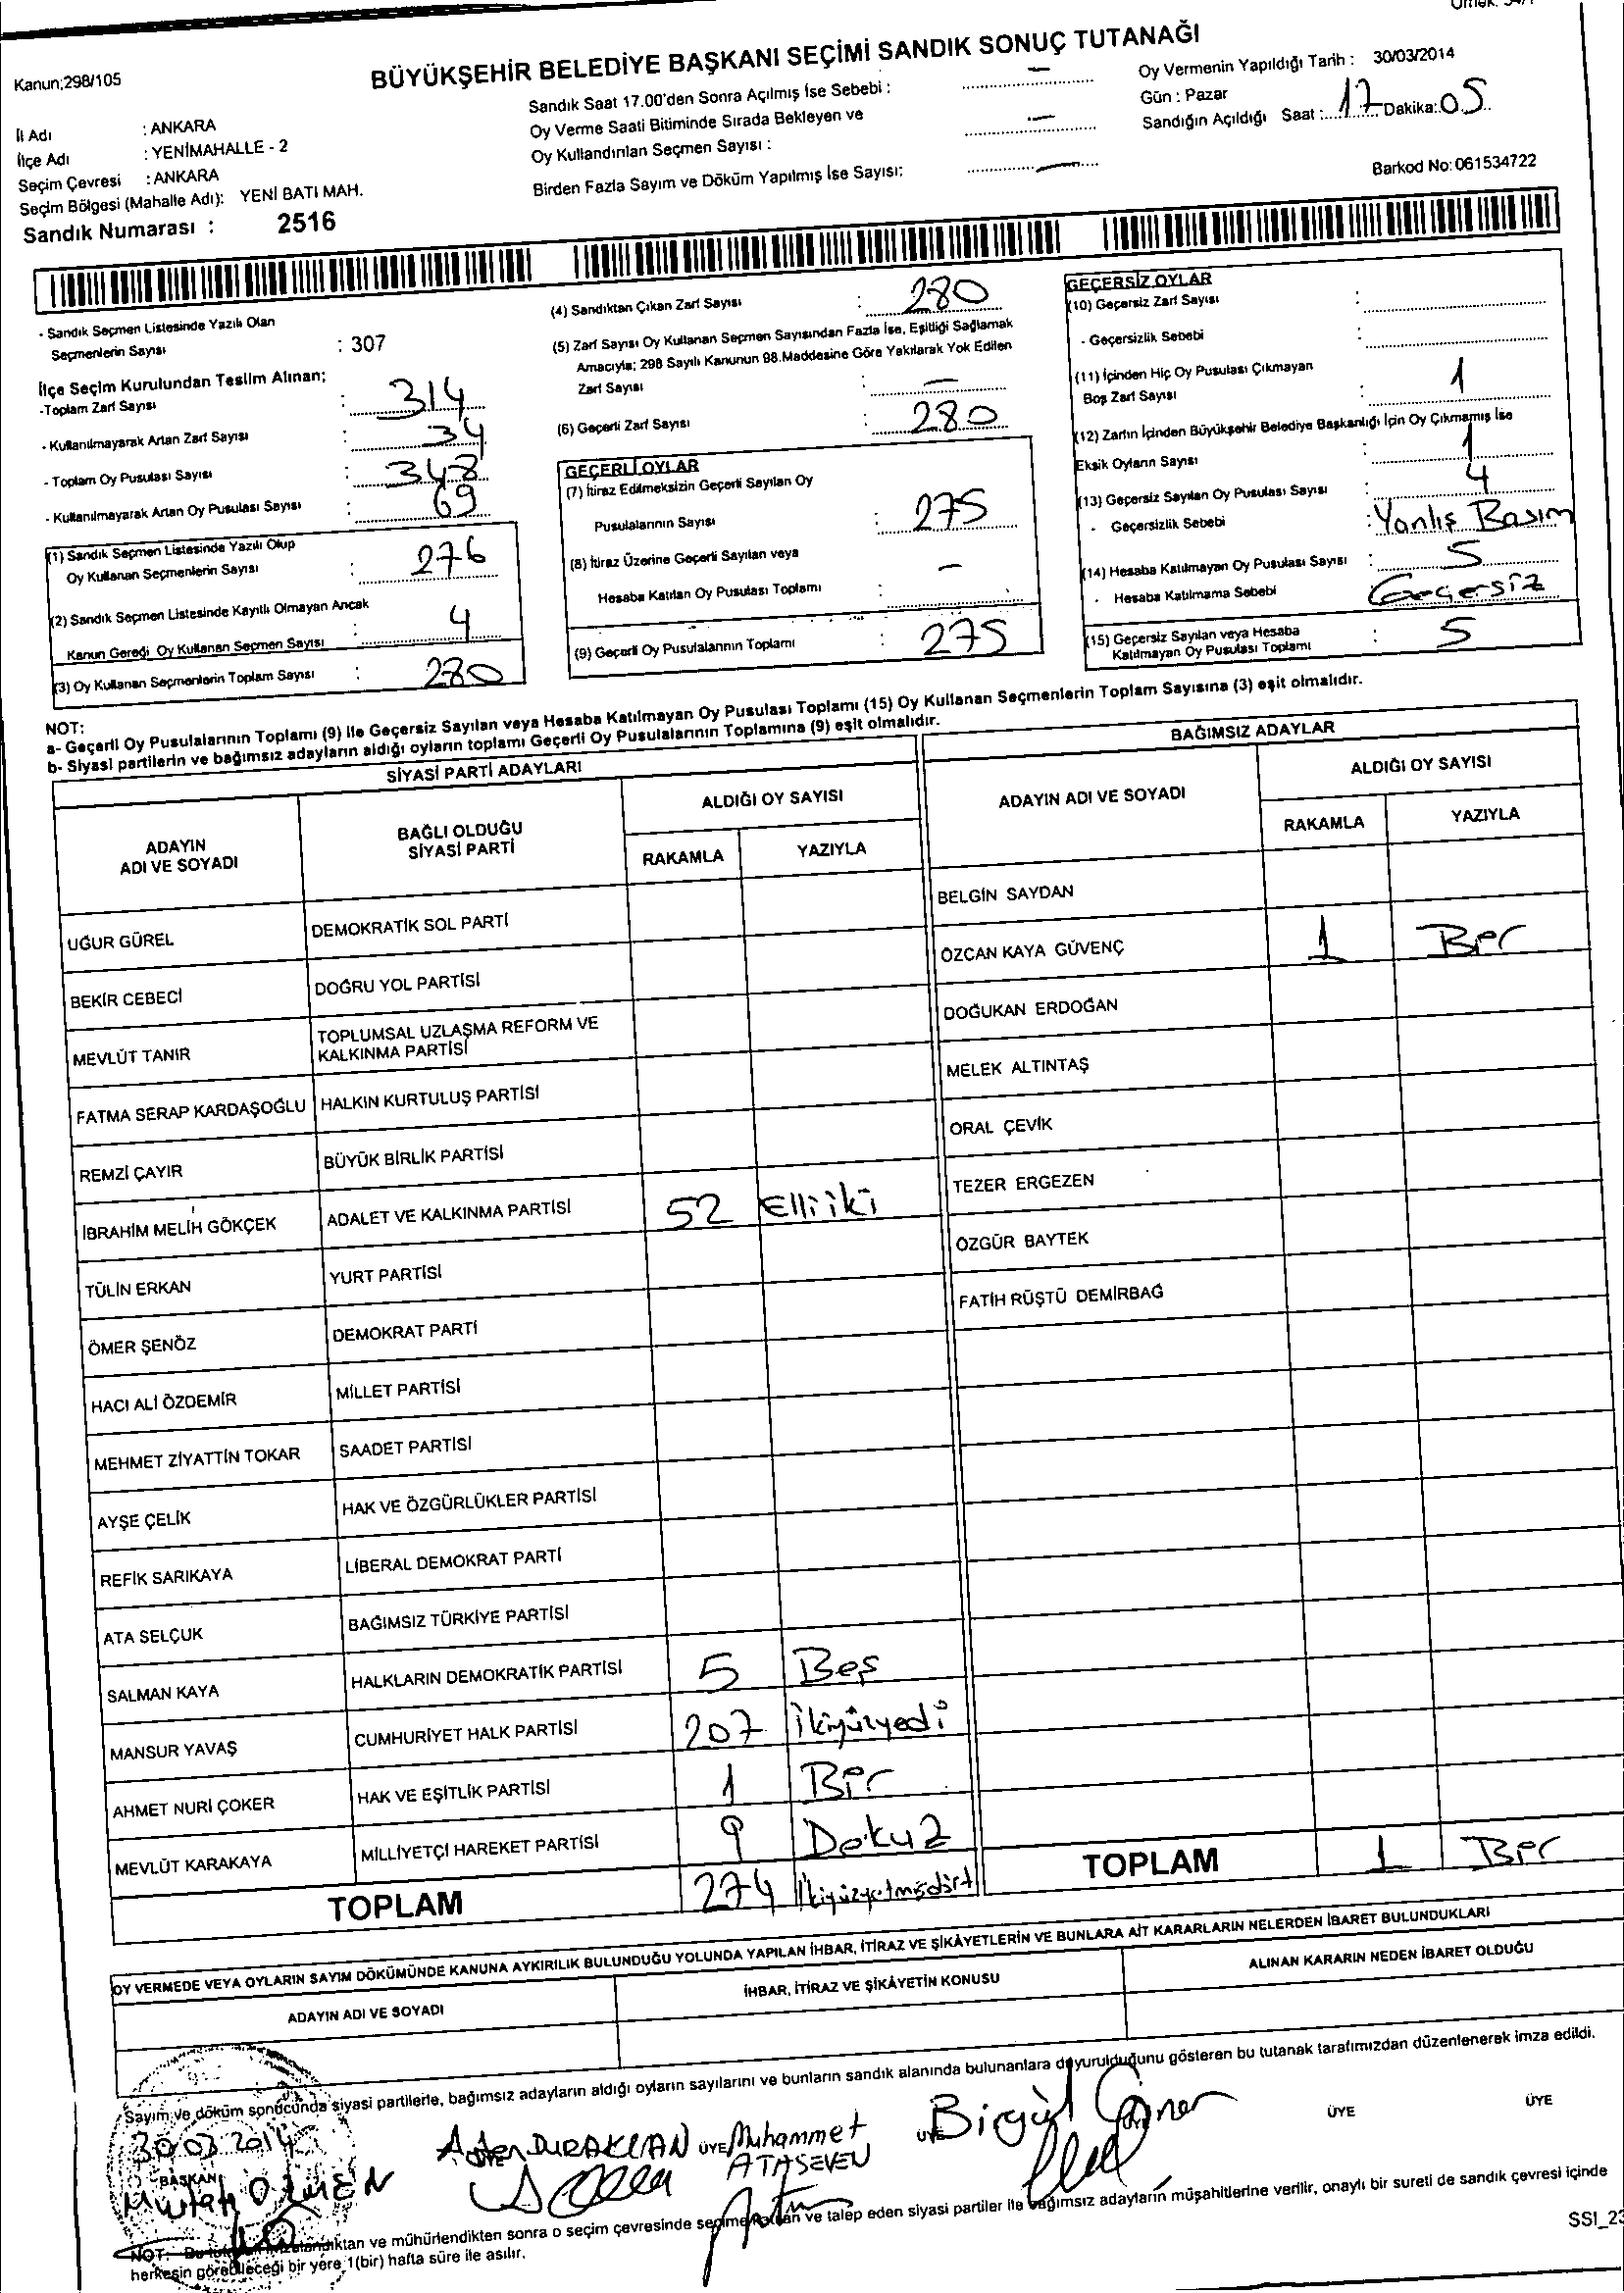 BÜYÜKŞEHİR BELEDİYE BAŞKANI SEÇİMİ SANDIK SONUÇ TUTANAĞI
Kanun;298/105
İl Adı : ANKARA
İlçe Adı : YENİMAHALLE - 2
Seçim Çevresi : ANKARA
Seçim Bölgesi (Mahalle Adı): YENİ BATI MAH.
Sandık Numarası : 2516
Sandık Saat 17.00'den Sonra Açılmış İse Sebebi : —
Oy Verme Saati Bitiminde Sırada Bekleyen ve
Oy Kullandırılan Seçmen Sayısı : —
Birden Fazla Sayım ve Döküm Yapılmış İse Sayısı: —
Oy Vermenin Yapıldığı Tarih : 30/03/2014
Gün : Pazar
Sandığın Açıldığı Saat : 17 Dakika: 05
Barkod No: 061534722
- Sandık Seçmen Listesinde Yazılı Olan
Seçmenlerin Sayısı : 307
İlçe Seçim Kurulundan Teslim Alınan;
-Toplam Zarf Sayısı : 314
- Kullanılmayarak Artan Zarf Sayısı : 34
- Toplam Oy Pusulası Sayısı : 348
- Kullanılmayarak Artan Oy Pusulası Sayısı : 69
(1) Sandık Seçmen Listesinde Yazılı Olup
Oy Kullanan Seçmenlerin Sayısı : 276
(2) Sandık Seçmen Listesinde Kayıtlı Olmayan Ancak
Kanun Gereği Oy Kullanan Seçmen Sayısı : 4
(3) Oy Kullanan Seçmenlerin Toplam Sayısı : 280
(4) Sandıktan Çıkan Zarf Sayısı : 280
(5) Zarf Sayısı Oy Kullanan Seçmen Sayısından Fazla İse, Eşitliği Sağlamak
Amacıyla; 298 Sayılı Kanunun 98.Maddesine Göre Yakılarak Yok Edilen
Zarf Sayısı : —
(6) Geçerli Zarf Sayısı : 280
GEÇERLİ OYLAR
(7) İtiraz Edilmeksizin Geçerli Sayılan Oy
Pusulalarının Sayısı : 275
(8) İtiraz Üzerine Geçerli Sayılan veya
Hesaba Katılan Oy Pusulası Toplamı : —
(9) Geçerli Oy Pusulalarının Toplamı : 275
GEÇERSİZ OYLAR
(10) Geçersiz Zarf Sayısı :
- Geçersizlik Sebebi :
(11) İçinden Hiç Oy Pusulası Çıkmayan
Boş Zarf Sayısı : 1
(12) Zarfın İçinden Büyükşehir Belediye Başkanlığı İçin Oy Çıkmamış İse
Eksik Oyların Sayısı : 1
(13) Geçersiz Sayılan Oy Pusulası Sayısı : 4
- Geçersizlik Sebebi : Yanlış Basım
(14) Hesaba Katılmayan Oy Pusulası Sayısı : 5
- Hesaba Katılmama Sebebi : Geçersiz
(15) Geçersiz Sayılan veya Hesaba
Katılmayan Oy Pusulası Toplamı : 5
NOT:
a- Geçerli Oy Pusulalarının Toplamı (9) ile Geçersiz Sayılan veya Hesaba Katılmayan Oy Pusulası Toplamı (15) Oy Kullanan Seçmenlerin Toplam Sayısına (3) eşit olmalıdır.
b- Siyasi partilerin ve bağımsız adayların aldığı oyların toplamı Geçerli Oy Pusulalarının Toplamına (9) eşit olmalıdır.
SİYASİ PARTİ ADAYLARI
ADAYIN
ADI VE SOYADI
BAĞLI OLDUĞU
SİYASİ PARTİ
ALDIĞI OY SAYISI
RAKAMLA YAZIYLA
UĞUR GÜREL DEMOKRATİK SOL PARTİ
BEKİR CEBECİ DOĞRU YOL PARTİSİ
MEVLÜT TANIR TOPLUMSAL UZLAŞMA REFORM VE
KALKINMA PARTİSİ
FATMA SERAP KARDAŞOĞLU HALKIN KURTULUŞ PARTİSİ
REMZİ ÇAYIR BÜYÜK BİRLİK PARTİSİ
İBRAHİM MELİH GÖKÇEK ADALET VE KALKINMA PARTİSİ 52 Elliiki
TÜLİN ERKAN YURT PARTİSİ
ÖMER ŞENÖZ DEMOKRAT PARTİ
HACI ALİ ÖZDEMİR MİLLET PARTİSİ
MEHMET ZİYATTİN TOKAR SAADET PARTİSİ
AYŞE ÇELİK HAK VE ÖZGÜRLÜKLER PARTİSİ
REFİK SARIKAYA LİBERAL DEMOKRAT PARTİ
ATA SELÇUK BAĞIMSIZ TÜRKİYE PARTİSİ
SALMAN KAYA HALKLARIN DEMOKRATİK PARTİSİ 5 Beş
MANSUR YAVAŞ CUMHURİYET HALK PARTİSİ 207 İkiyüzyedi
AHMET NURİ ÇOKER HAK VE EŞİTLİK PARTİSİ 1 Bir
MEVLÜT KARAKAYA MİLLİYETÇİ HAREKET PARTİSİ 9 Dokuz
TOPLAM 274 İkiyüzyetmişdört
BAĞIMSIZ ADAYLAR
ADAYIN ADI VE SOYADI
ALDIĞI OY SAYISI
RAKAMLA YAZIYLA
BELGİN SAYDAN
ÖZCAN KAYA GÜVENÇ 1 Bir
DOĞUKAN ERDOĞAN
MELEK ALTINTAŞ
ORAL ÇEVİK
TEZER ERGEZEN
ÖZGÜR BAYTEK
FATİH RÜŞTÜ DEMİRBAĞ
TOPLAM 1 Bir
OY VERMEDE VEYA OYLARIN SAYIM DÖKÜMÜNDE KANUNA AYKIRILIK BULUNDUĞU YOLUNDA YAPILAN İHBAR, İTİRAZ VE ŞİKÂYETLERİN VE BUNLARA AİT KARARLARIN NELERDEN İBARET BULUNDUKLARI
ADAYIN ADI VE SOYADI İHBAR, İTİRAZ VE ŞİKÂYETİN KONUSU ALINAN KARARIN NEDEN İBARET OLDUĞU
Sayım ve döküm sonucunda siyasi partilerle, bağımsız adayların aldığı oyların sayılarını ve bunların sandık alanında bulunanlara duyurulduğunu gösteren bu tutanak tarafımızdan düzenlenerek imza edildi.
30.03.2014
BAŞKAN
ÜYE Muhammet
ATASEVEN
ÜYE Birgül
ÜYE
ÜYE
NOT: Bu ve mühürlendikten sonra o seçim çevresinde seçime katılan ve talep eden siyasi partiler ile bağımsız adayların müşahitlerine verilir, onaylı bir sureti de sandık çevresi içinde
herkesin görebileceği bir yere 1(bir) hafta süre ile asılır.